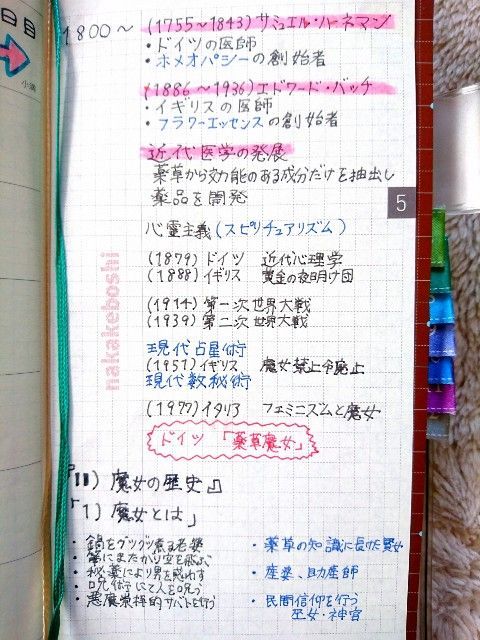 1800～ (1755～1843) サミュエル・ハーネマン
・ドイツの医師
・ホメオパシーの創始者
(1886～1936) エドワード・バッチ
・イギリスの医師
・フラワーエッセンスの創始者
近代医学の発展
薬草から効能のある成分だけを抽出し
薬品を開発
5
心霊主義(スピリチュアリズム)
(1879) ドイツ 近代心理学
(1888) イギリス 黄金の夜明け団
(1914) 第一次世界大戦
(1939) 第二次世界大戦
現代占星術
(1951) イギリス 魔女禁止令廃止
現代数秘術
(1977) イタリア フェミニズムと魔女
ドイツ 「薬草魔女」
nakakeboshi
『11) 魔女の歴史』
「1) 魔女とは」
・鍋をグツグツ煮る老婆
・箒にまたがり空を飛ぶ
・秘薬により男を惑わす
・呪術にて人を呪う
・悪魔崇拝的サバトを行う
・薬草の知識に長けた賢女
・産婆、助産師
・民間信仰を行う
巫女・神官